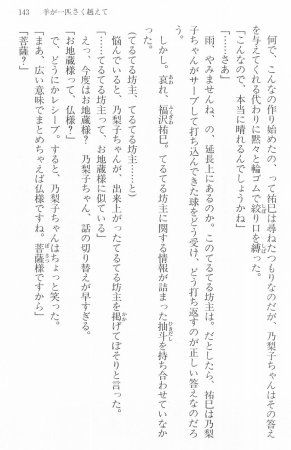 143 羊が一匹さく越えて
何で、こんなの作り始めたの、って祐巳は尋ねたつもりなのだが、乃梨子ちゃんはその答え
を与えてくれる代わりに黙々と輪ゴムで絞り口を縛った。
「こんなので、本当に晴れるんでしょうかね」
「……さあ」
雨、やみませんね、の、延長上にあるのか。このてるてる坊主は。だとしたら、祐巳は乃梨
子ちゃんがサーブして打ち込んできた球をどう受け、どう打ち返すのが正しい答えなのだろ
う。
しかし。哀れ、福沢祐巳。てるてる坊主に関する情報が詰まった抽斗を持ち合わせていなか
った。
(てるてる坊主、てるてる坊主……と)
悩んでいると、乃梨子ちゃんが、出来上がったてるてる坊主を掲げてぼそりと言った。
「……てるてる坊主って、お地蔵様に似ている」
えっ、今度はお地蔵様? 乃梨子ちゃん、話の切り替えが早すぎる。
「お地蔵様って、仏様?」
で、どうにかレシーブ。すると、乃梨子ちゃんはちょっと笑った。
「まあ、広い意味でまとめちゃえば仏様ですね。菩薩様ですから」
「菩薩?」